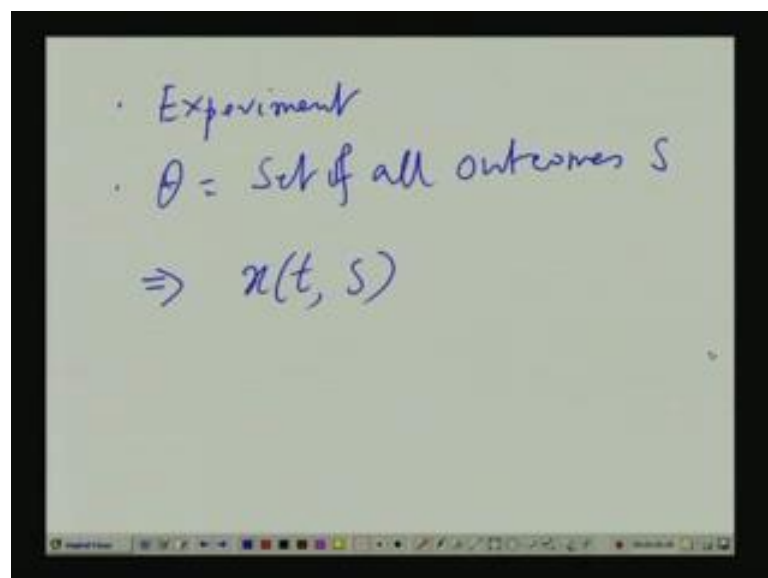 · Experiment
· θ = Set of all outcomes S
⇒ x(t, S)